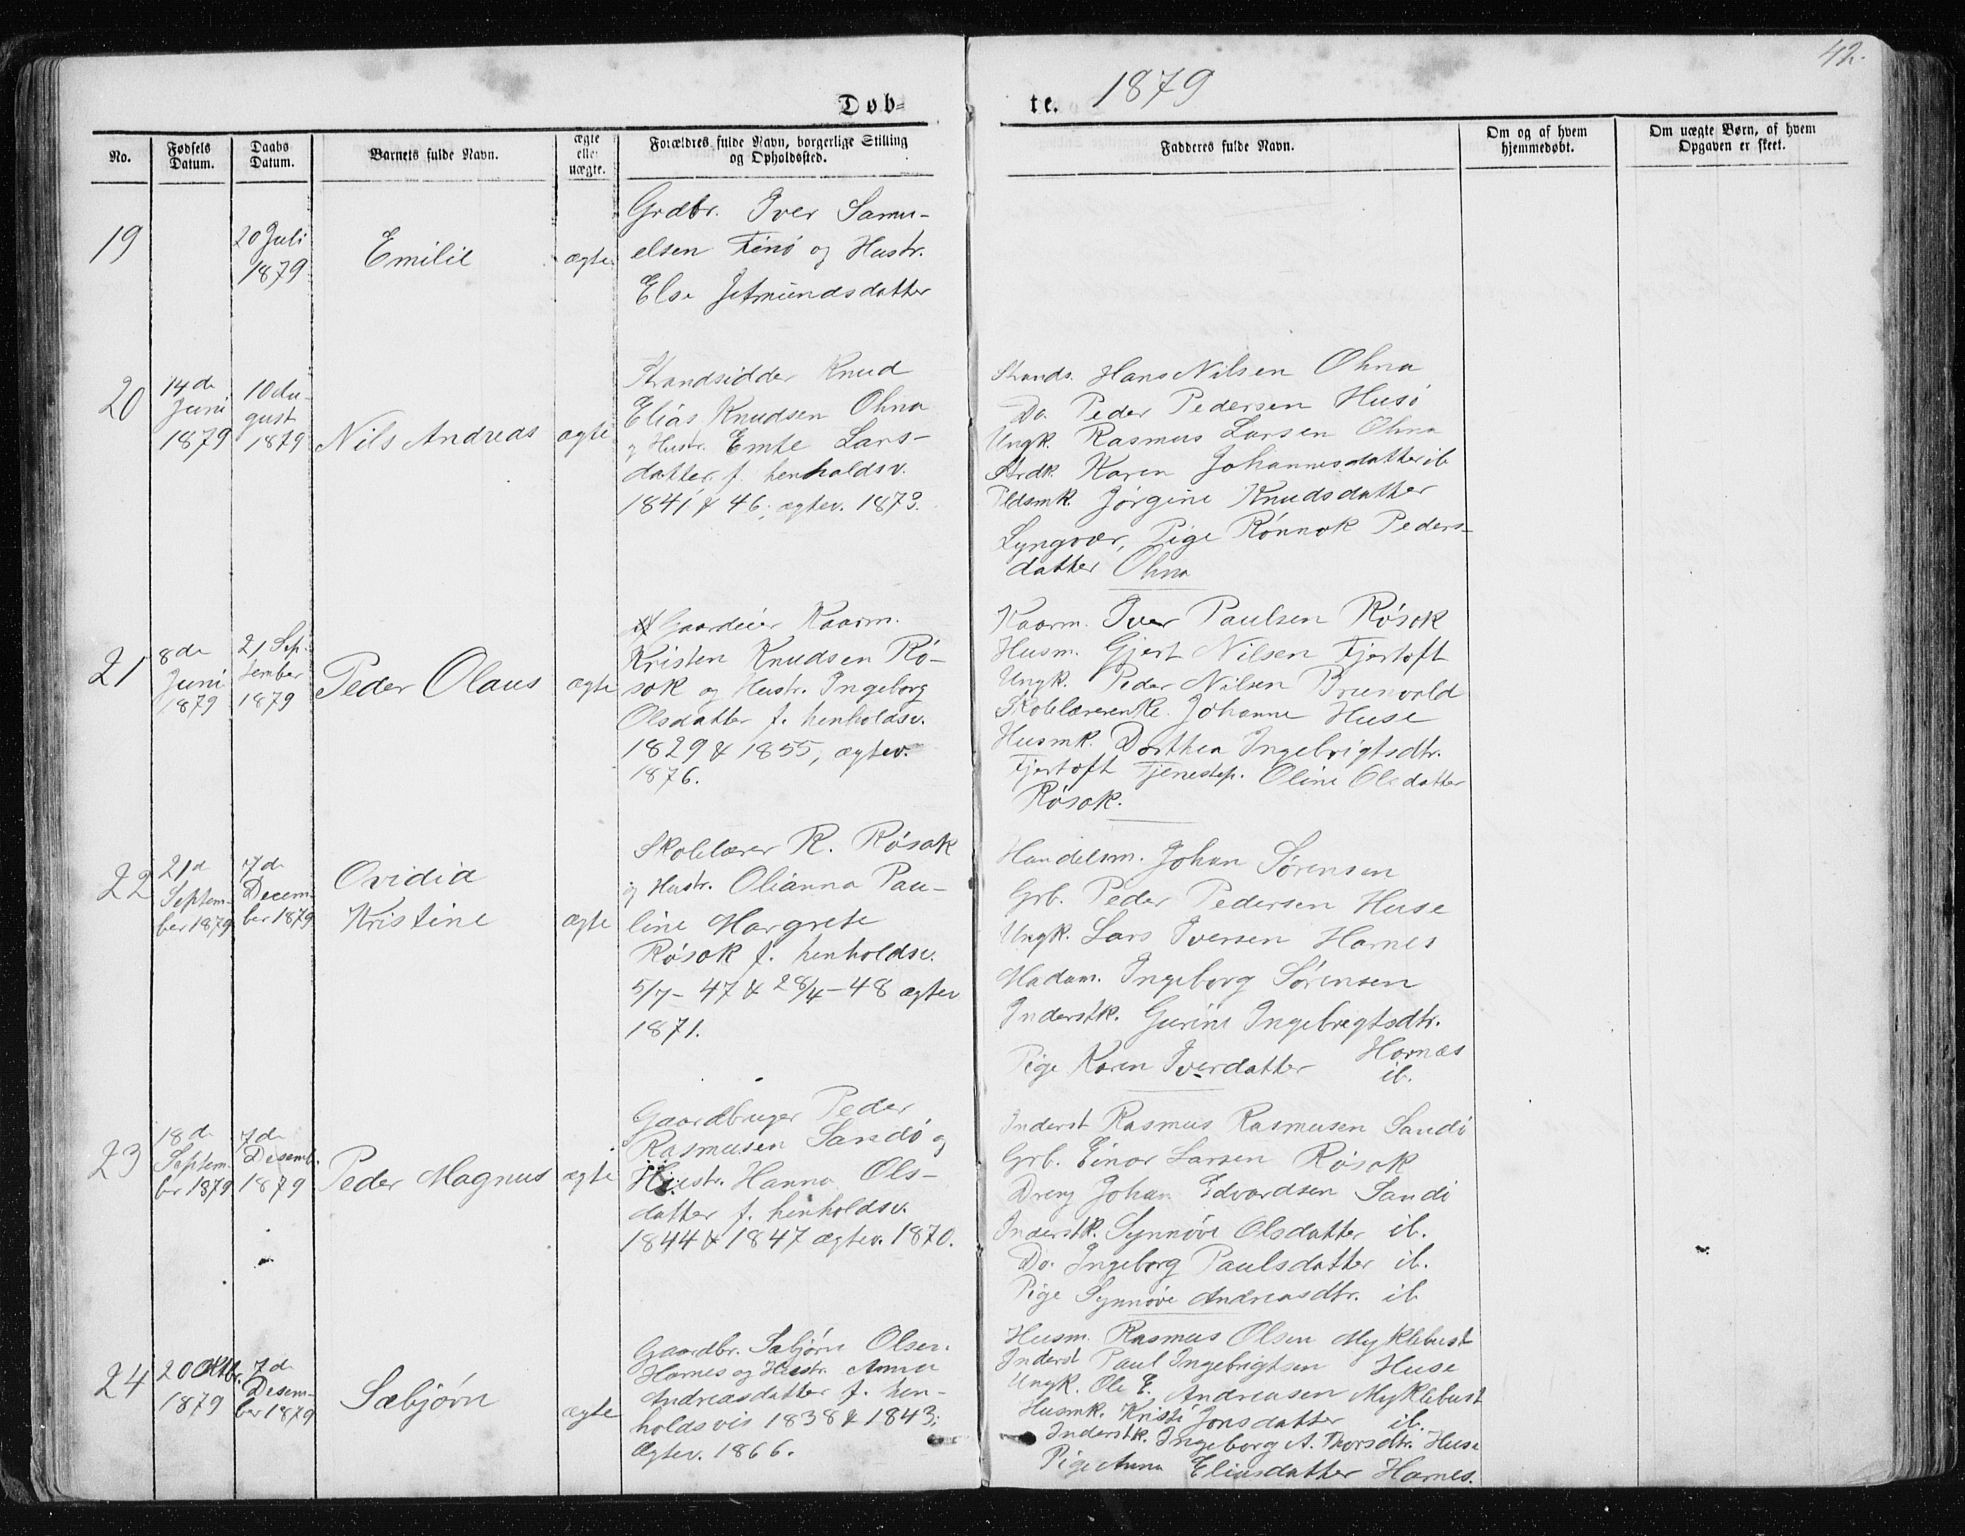 42.
Døb=
te. 1879
No.
Fødsels Datum.
Daabs Datum.
Barnets fulde Navn.
ægte eller uægte.
Forældres fulde Navn, borgerlige Stilling
og Opholdssted.
Fadderes fulde Navn.
Om og af hvem
hjemmedøbt.
Om uægte Børn, af hvem
Opgaven er skeet.
19
20 Juli
1879
Emilie
ægte
Grdbr. Iver Samu-
elsen Finö og Hustr.
Else Jetmundsdatter
20
14 de
Juni
1879
10 Au-
gust
1879
Nils Andreas
ægte
Strandsidder Knud
Elias Knudsen Ohna
og Hustr. Emte Lars-
datter f. henholdsv.
1841 & 46, ægtev. 1873.
Strands. Hans Nilsen Ohna
Do. Peder Pedersen Husö
Ungk. Rasmus Larsen Ohna
Strdk. Karen Johannesdatter ib
Pldsmk. Jörgine Knudsdatter
Lyngvær, Pige Rönnok Peders-
datter Ohna
21
8 de
Juni
1879
21 Sep-
tember
1879
Peder Olaus
ægte
Gaardeier Kaarm.
Kristen Knudsen Rö-
sok og Hustr. Ingeborg
Olsdatter f. henholdsv.
1829 & 1855, ægtev.
1876.
Kaarm. Iver Paulsen Rösok
Husm. Gjert Nilsen Fjertoft
Ungk. Peder Nilsen Brunvold
Skolelærerenke. Johanne Huse
Husmk. Dorthea Ingebrigtsdtr.
Fjertoft Tjenestep. Oline Olsdatter
Rösok.
22
21 d
Septem-
ber 1879
7 de
Decem-
ber 1879
Ovidia
Kristine
ægte
Skolelærer R. Rösok
og Hustr. Olianna Pau-
line Margrete
Rösok f. henholdsv.
5/7 - 47 & 28/4 - 48 ægtev
1871.
Handelsm. Johan Sörensen
Grb. Peder Pedersen Huse
Ungk. Lars Iversen Harnes
Madam. Ingeborg Sörensen
Inderstk. Gurine Ingebregtsdtr.
Harnæs
Pige Karen Iverdatter ib.
23
18 de
Septem-
ber 1879
7 de
Desemb.
1879
Peder Magnus
ægte
Gaardbruger Peder
Rasmusen Sandö og
Hustr. Hanna Ols-
datter f. henholdsv.
1844 & 1847 ægtev. 1870.
Inderst Rasmus Rasmusen Sandö
Grb. Einar Larsen Rösok
Dreng Johan Edvardsen Sandö
Inderstk. Synnöve Olsdatter ib.
Do. Ingeborg Paulsdatter ib.
Pige Synnöve Andreasdtr. ib
24
20 Oktbr.
1879
7 de
Desem-
ber 1879
Sæbjörn
ægte
Gaardbr. Sæbjörn Olsen
Harnes og Hustr. Anna
Andreasdatter f. hen-
holdsvis 1838 & 1843;
Ægtev. 1866.
Husm. Rasmus Olsen Myklebust
Inderst Paul Ingebrigtsen Huse
Ungk. Ole E. Andreasen Myklebust
Husmk. Kristi Jonsdatter ib.
Inderstk. Ingeborg A. Thorsdtr. Huse
Pige Anna Eliasdatter Harnes.